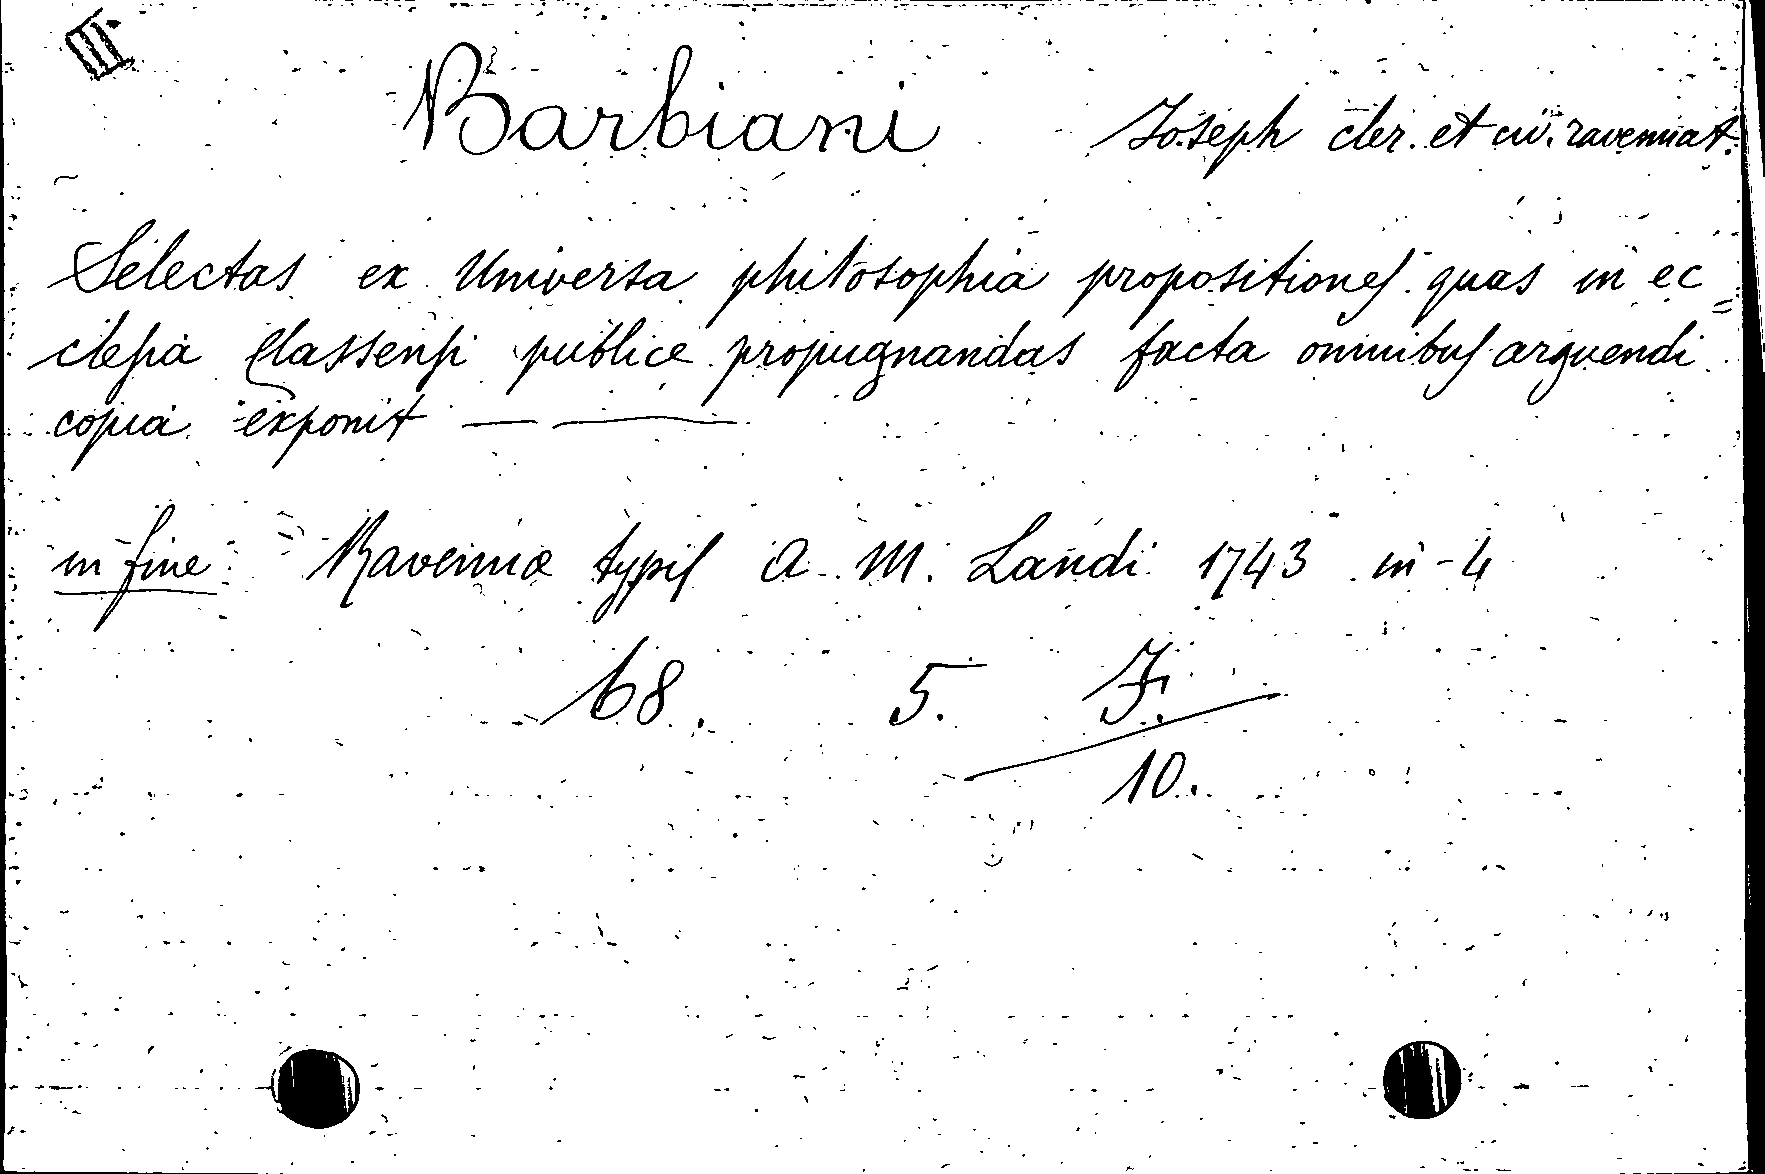 III
Barbiani Joseph cler. et civ. ravennat.
Selectas ex Universa philosophia propositiones quas in ec=
clesia Classensi publice propugnandas facta omnibus arguendi
copia exponit — —
in fine: Ravennæ typis A. M. Landi 1743 in-4
68. 5. F.
10.